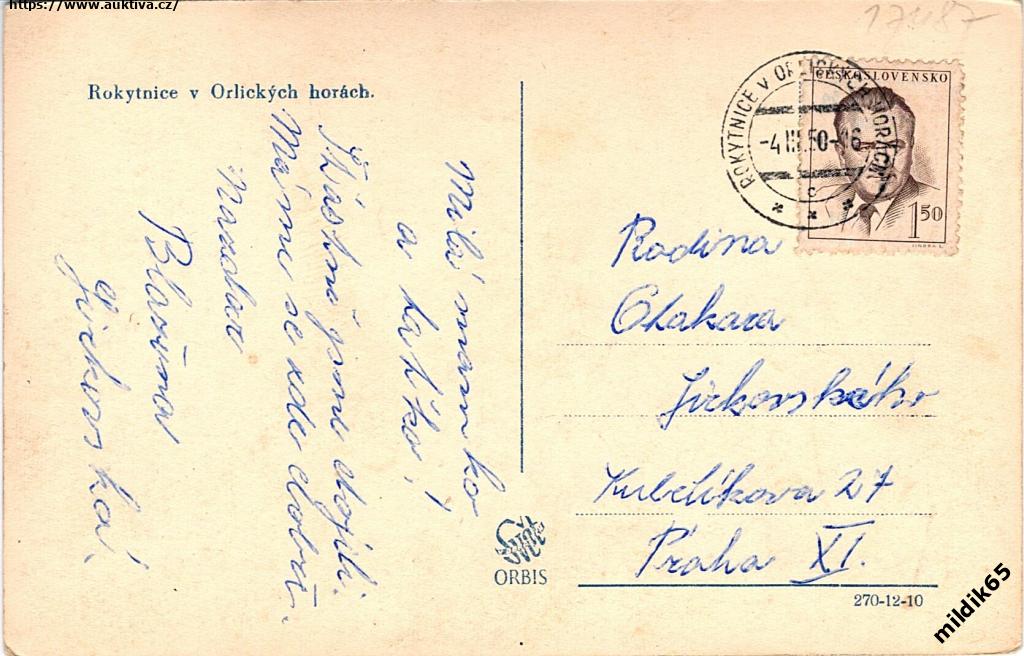 https://www.auktiva.cz/
17487
Rokytnice v Orlických horách.
Milá mamko
a taťko!
Šťástně jsme dojeli.
Máme se zde dobře.
Nazdar
Blažena
a
Jirkovská.
ROKYTNICE V ORLICKÝCH HORÁCH
-4.III.50-16
C
ČESKOSLOVENSKO
1 50
Rodina
Otakara
Jirkovského
Kubelíkova 27
Praha XI.
ORBIS
270-12-10
mildik65